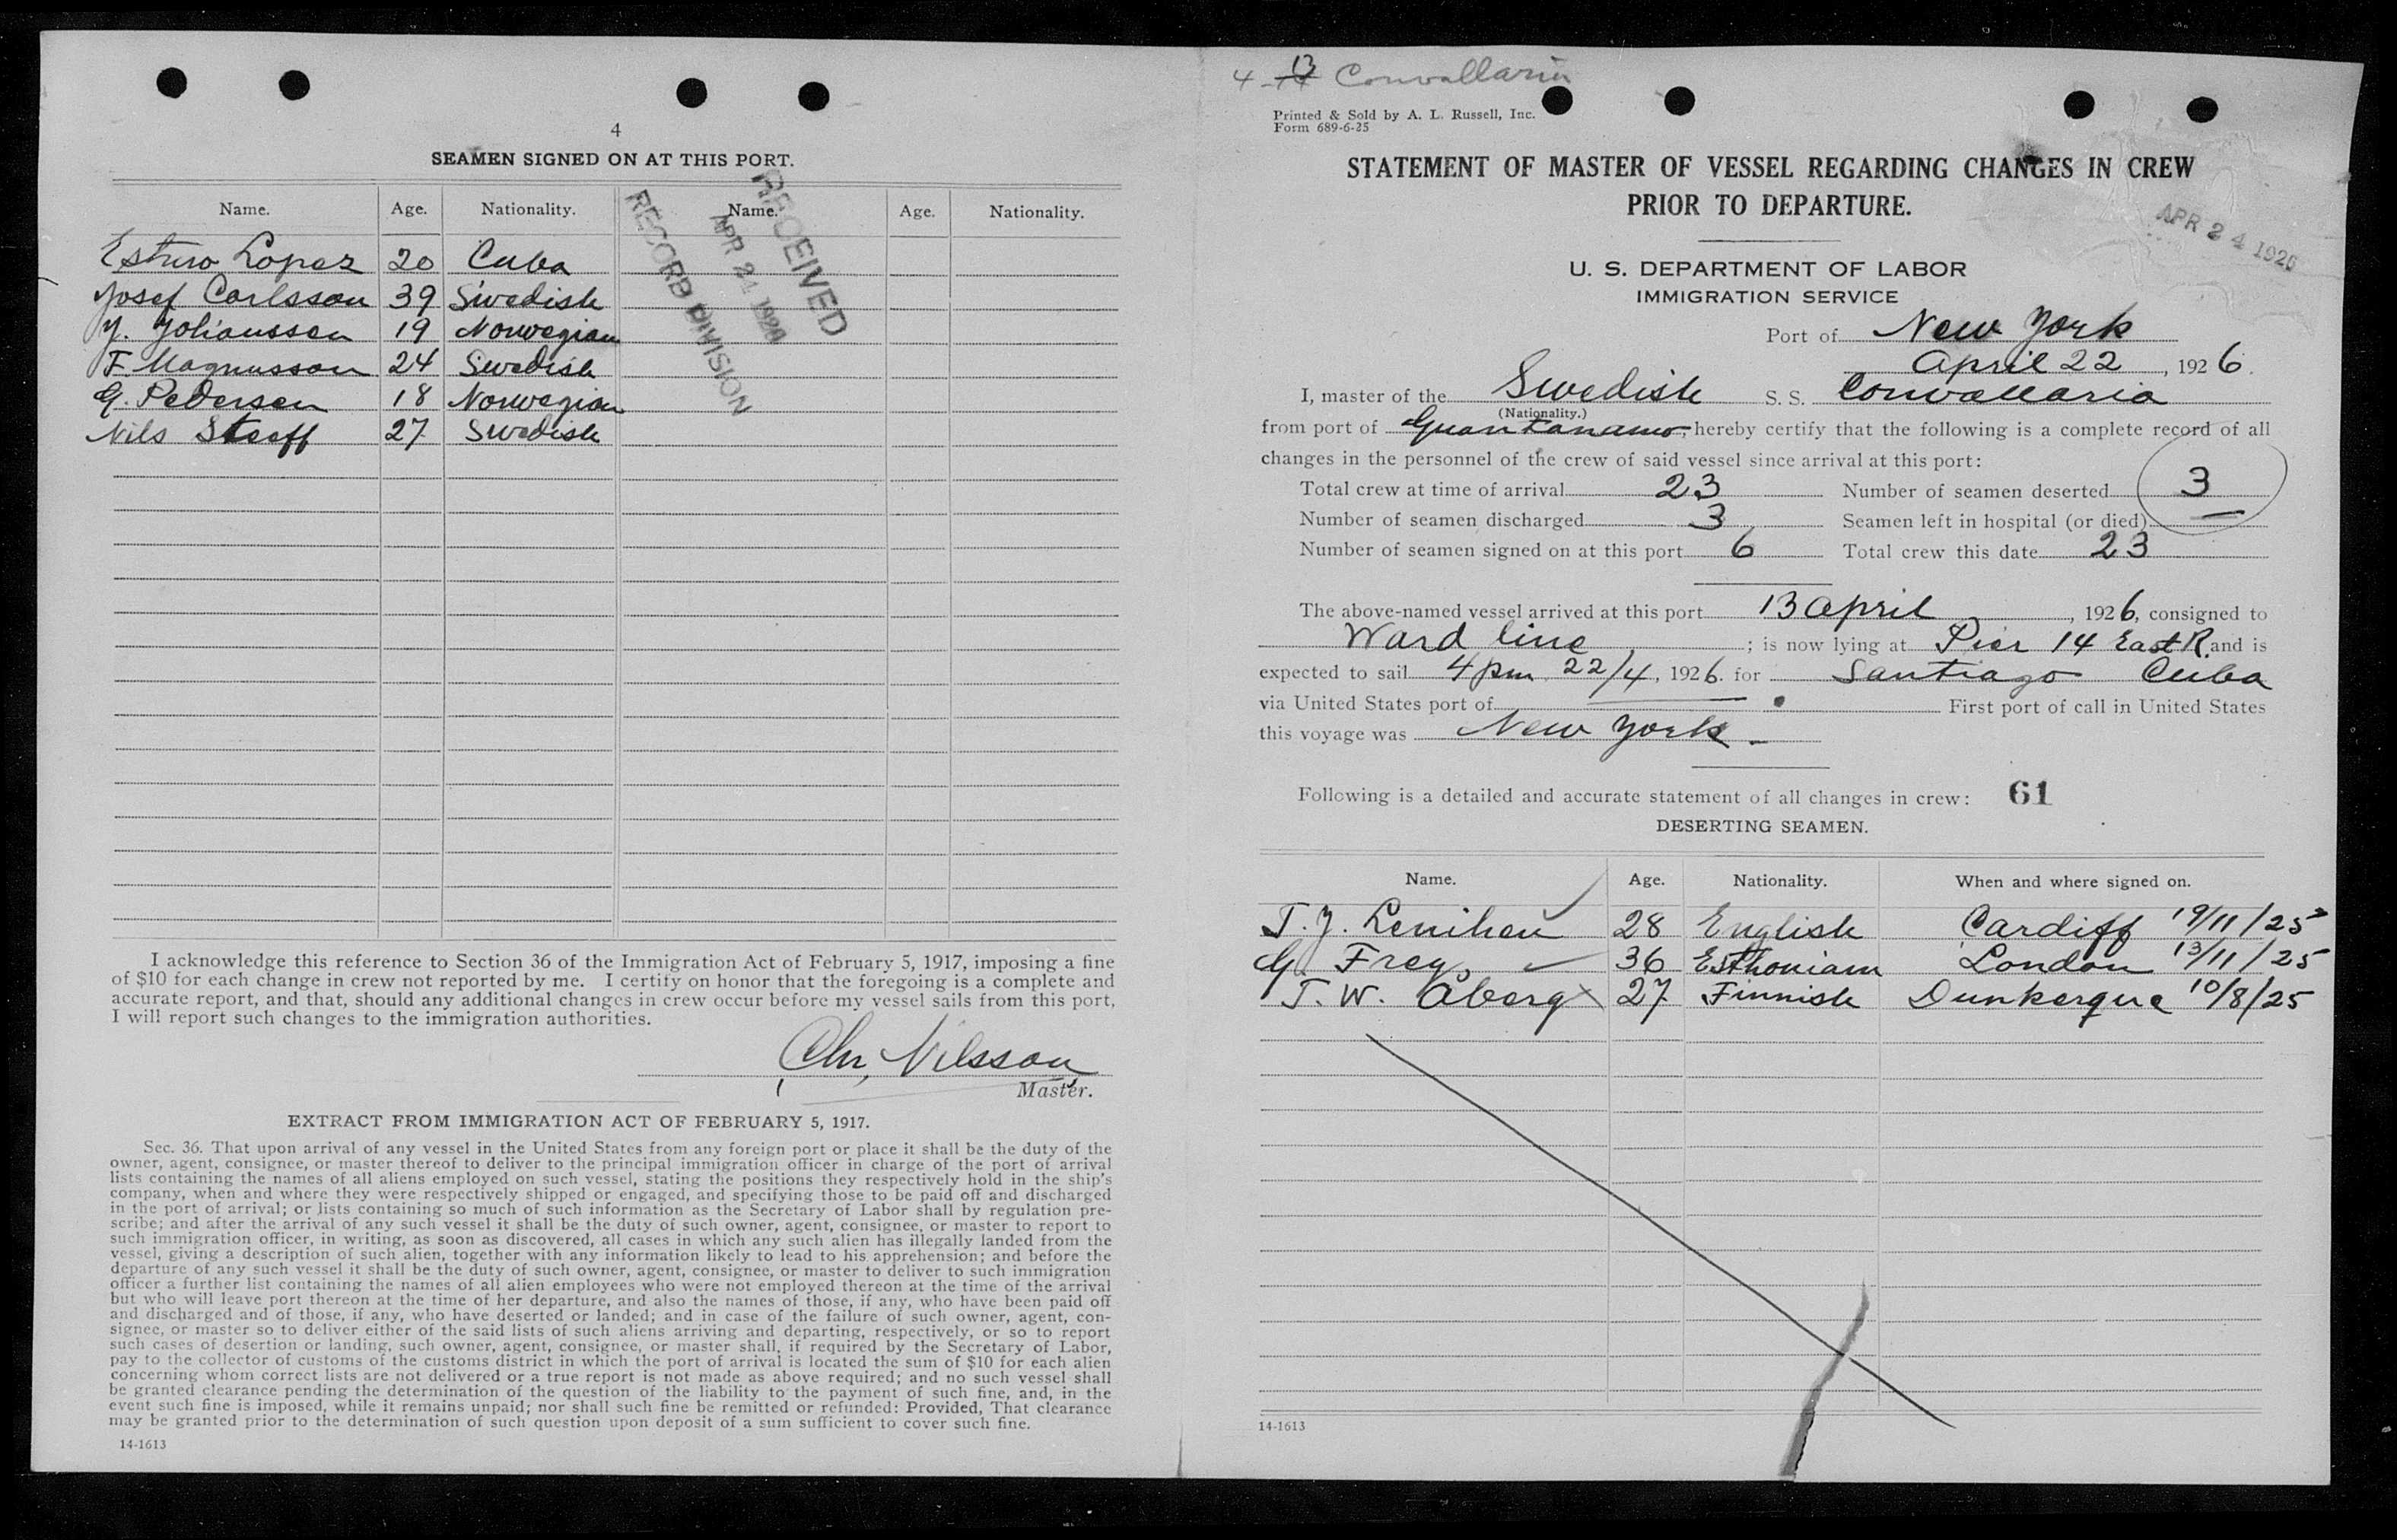 4
SEAMEN SIGNED ON AT THIS PORT.
Name. Age. Nationality. Name. Age. Nationality.
RECEIVED
APR 24 1926
RECORD DIVISION
Lopez 20 Cuba
Josef Carlsson 39 Swedish
J. Johanssen 19 Norwegian
F. Magnusson 24 Swedish
G. Pedersen 18 Norwegian
Nils 27 Swedish
I acknowledge this reference to Section 36 of the Immigration Act of February 5, 1917, imposing a fine
of $10 for each change in crew not reported by me. I certify on honor that the foregoing is a complete and
accurate report, and that, should any additional changes in crew occur before my vessel sails from this port,
I will report such changes to the immigration authorities.
Chr, Nilsson
Master.
EXTRACT FROM IMMIGRATION ACT OF FEBRUARY 5, 1917.
Sec. 36. That upon arrival of any vessel in the United States from any foreign port or place it shall be the duty of the
owner, agent, consignee, or master thereof to deliver to the principal immigration officer in charge of the port of arrival
lists containing the names of all aliens employed on such vessel, stating the positions they respectively hold in the ship's
company, when and where they were respectively shipped or engaged, and specifying those to be paid off and discharged
in the port of arrival; or lists containing so much of such information as the Secretary of Labor shall by regulation pre-
scribe; and after the arrival of any such vessel it shall be the duty of such owner, agent, consignee, or master to report to
such immigration officer, in writing, as soon as discovered, all cases in which any such alien has illegally landed from the
vessel, giving a description of such alien, together with any information likely to lead to his apprehension; and before the
departure of any such vessel it shall be the duty of such owner, agent, consignee, or master to deliver to such immigration
officer a further list containing the names of all alien employees who were not employed thereon at the time of the arrival
but who will leave port thereon at the time of her departure, and also the names of those, if any, who have been paid off
and discharged and of those, if any, who have deserted or landed; and in case of the failure of such owner, agent, con-
signee, or master so to deliver either of the said lists of such aliens arriving and departing, respectively, or so to report
such cases of desertion or landing, such owner, agent, consignee, or master shall, if required by the Secretary of Labor,
pay to the collector of customs of the customs district in which the port of arrival is located the sum of $10 for each alien
concerning whom correct lists are not delivered or a true report is not made as above required; and no such vessel shall
be granted clearance pending the determination of the question of the liability to the payment of such fine, and, in the
event such fine is imposed, while it remains unpaid; nor shall such fine be remitted or refunded: Provided, That clearance
may be granted prior to the determination of such question upon deposit of a sum sufficient to cover such fine.
14-1613
4-13 Convallaria
Printed & Sold by A. L. Russell, Inc.
Form 689-6-25
STATEMENT OF MASTER OF VESSEL REGARDING CHANGES IN CREW
PRIOR TO DEPARTURE.
APR 24 1926
U. S. DEPARTMENT OF LABOR
IMMIGRATION SERVICE
Port of New York
April 22, 1926.
I, master of the Swedish S. S. Convallaria
(Nationality.)
from port of Guantanamo, hereby certify that the following is a complete record of all
changes in the personnel of the crew of said vessel since arrival at this port:
Total crew at time of arrival 23 Number of seamen deserted 3
Number of seamen discharged 3 Seamen left in hospital (or died) —
Number of seamen signed on at this port 6 Total crew this date 23
The above-named vessel arrived at this port 13 April, 1926, consigned to
Ward line; is now lying at Pier 14 East R. and is
expected to sail 4 pm 22/4, 1926. for Santiago Cuba
via United States port of — . First port of call in United States
this voyage was New York -
Following is a detailed and accurate statement of all changes in crew: 61
DESERTING SEAMEN.
Name. Age. Nationality. When and where signed on.
T. J. Lenihan 28 English Cardiff 19/11/25
G. Frey 36 Esthonian London 13/11/25
T. W. Åberg 27 Finnish Dunkerque 10/8/25
14-1613